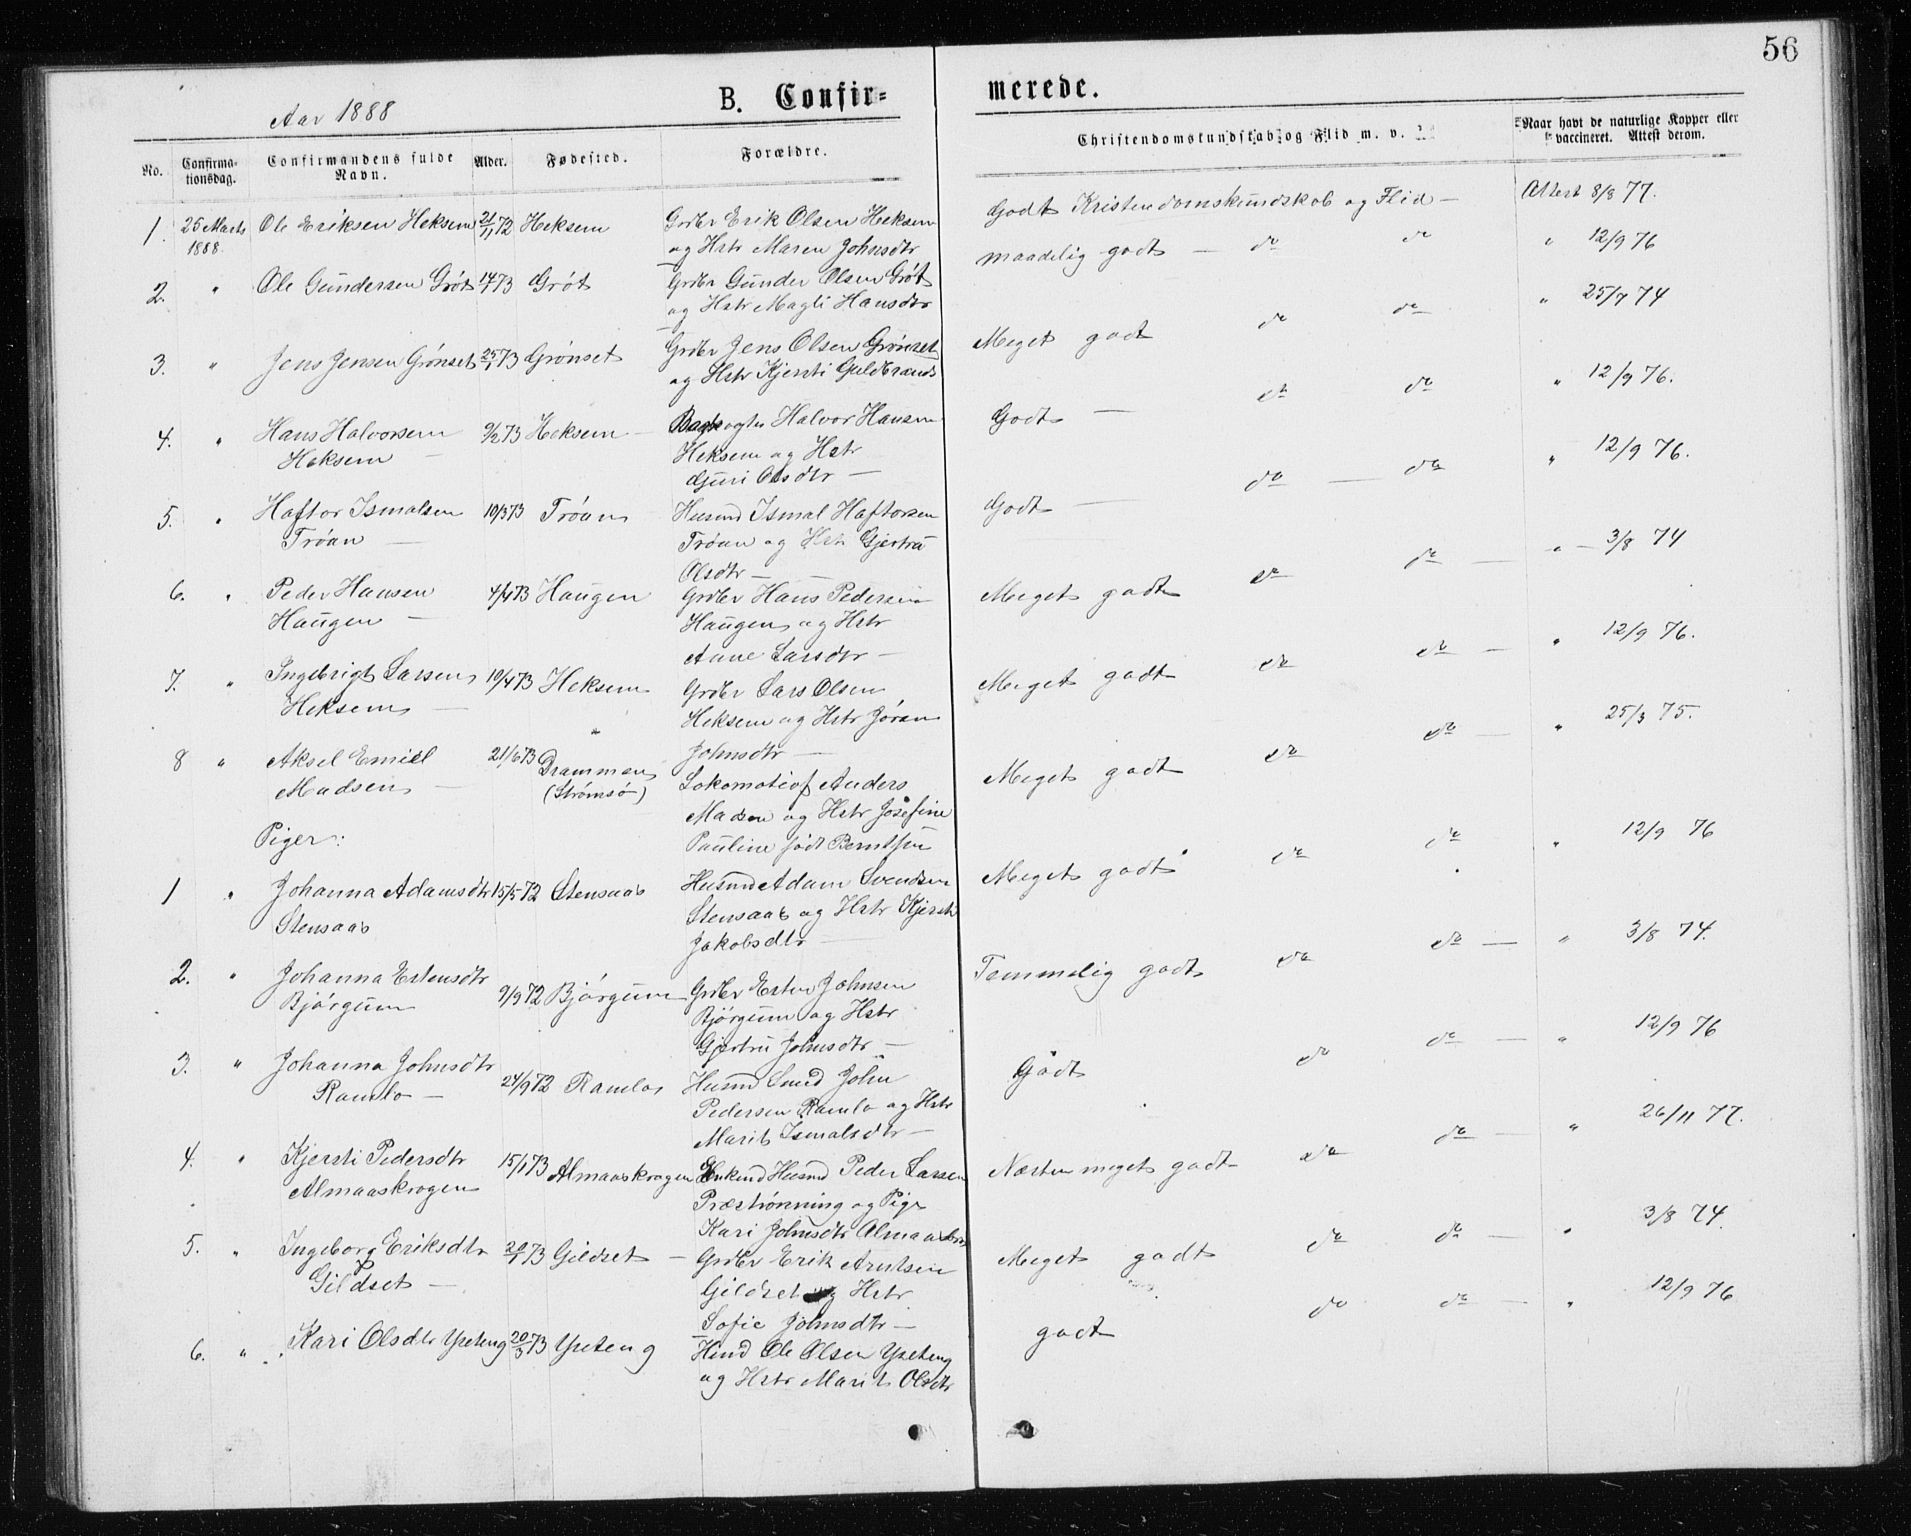 56
Aar 1888
B. Confir= merede.
No. Confirma-tionsdag. Confirmandens fulde Navn. Alder. Fødested. Forældre. Christendomskundskab og Flid m. v. Naar havt de naturlige Kopper eller vaccineret. Attest derom.
1. 25 Marts Ole Eriksen Heksem 21/11 72 Heksem Grdbr Erik Olsen Heksem Godt Kristendomskundskab og Flid — Attest 8/8 77.
1888. og Hstr Maren Johnsdtr
2. " Ole Gundersen Grøt 73 Grøt Grdbr Gunder Olsen Grøt maadelig godt — do do " 12/9 76
og Hstr Magli Hansdtr
3. " Jens Jensen Grønset 25/1 73 Grønset Grdbr Jens Olsen Grønset Meget godt do do " 25/7 74
og Hstr Kjersti Guldbrands
4. " Hans Halvorsen 9/2 73 Heksem — Halvor Hansen Godt — do do " 12/9 76.
Heksem — Heksem og Hstr
Guri Olsdtr —
5. " Haftor Ismalsen 10/3 73 Trøan Husmd Ismal Haftorsen Godt — do — do " 12/9 76.
Trøan — Trøan og Hstr Gjertru
Olsdtr —
6. " Peder Hansen 4/4 73 Haugen Grdbr Hans Pedersen Meget godt do do — " — 3/8 74
Haugen — Haugen og Hstr
Anne Larsdtr —
7. " Ingebrigt Larsen 10/4 73 Heksem Grdbr Lars Olsen Meget godt do do — " 12/9 76.
Heksem — Heksem og Hstr Jøran
Johnsdtr —
8 " Aksel Emill 21/6 73 Drammen Lokomotivf Anders Meget godt do do — " 25/3 75.
Madsen — (Strømsø) Madsen og Hstr Josefine
Piger: Pauline født Berntsen
1 " Johanna Adamsdtr 15/5 72 Stensaas Husmd Adam Svendsen Meget godt do do " 12/9 76
Stensaas Stensaas og Hstr Kjersti
Jakobsdtr —
2. " Johanna Estensdtr 9/9 72 Bjørgum Grdbr Esten Johnsen Temmelig godt do do — " 3/8 74.
Bjørgum Bjørgum og Hstr
Gjertru Johnsdtr —
3. " Johanna Johnsdtr 24/9 72 Ramlo Husmd Smed John Godt do do — " 12/9 76
Ramlo — Pedersen Ramlo og Hstr
Marit Ismalsdtr —
4. " Kjersti Pedersdtr 15/1 73 Almaaskrogen Enkemd Husmd Peder Larsen Næsten meget godt do do — " 26/11 77.
Almaaskrogen Præstrønning og Pige
Kari Johnsdtr
5. " Ingeborg Eriksdtr 20/1 73 Gildset — Grdbr Erik Arntsen Meget godt do do — " 3/8 74.
Gildset — Gildset og Hstr
Sofie Johnsdtr —
6. " Kari Olsdtr Yseteng 20/3 73 Yseteng Hmd Ole Olsen Yseteng godt do do — " 12/9 76
og Hstr Marit Olsdtr